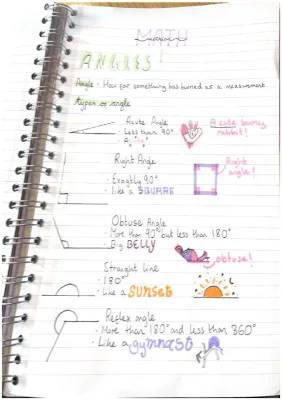 MATH
ANGLES
Angle - How far something has turned as a measurement
types of angle
Acute Angle
· Less than 90°
A cute bunny rabbit!
Right Angle
· Exactly 90°
· Like a SQUARE
Right angle!
Obtuse Angle
· More than 90° but less than 180°
· Big BELLY
obtuse!
Straight line
· 180°
· Like a sunset
Reflex angle
· More than 180° and less than 360°
· Like a gymnast